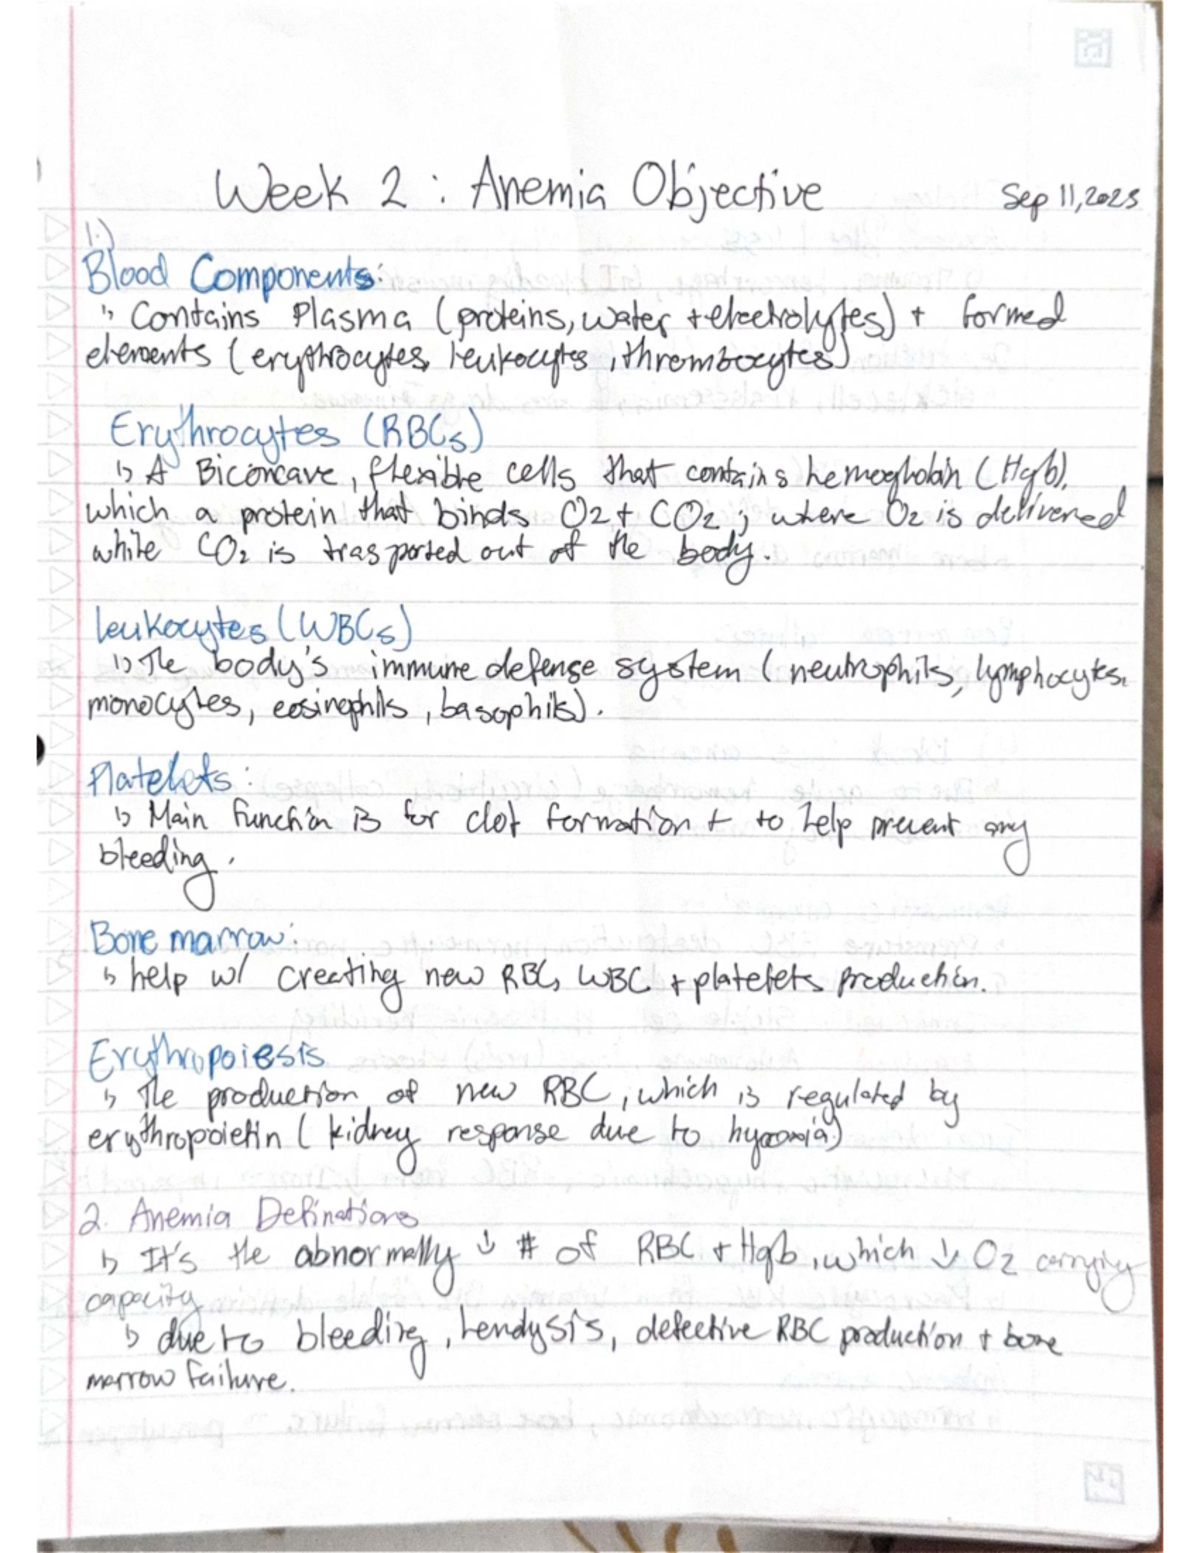 Week 2 : Anemia Objective Sep 11, 2025
1.)
Blood Components:
↳ Contains Plasma (proteins, water + electrolytes) + formed
elements (erythrocytes, leukocytes, thrombocytes)
Erythrocytes (RBCs)
↳ A Biconcave, flexible cells that contains hemoglobin (Hgb),
which a protein that binds O2 + CO2 ; where O2 is delivered
while CO2 is trasported out of the body.
leukocytes (WBCs)
↳ The body's immune defense system (neutrophils, lymphocytes,
monocytes, eosinophils, basophils).
Platelets :
↳ Main function is for clot formation + to help prevent any
bleeding.
Bone marrow:
↳ help w/ creating new RBC, WBC + platelets production.
Erythropoiesis
↳ The production of new RBC, which is regulated by
erythropoietin ( kidney response due to hypoxia)
2. Anemia Definations
↳ It's the abnormally ↓ # of RBC + Hgb, which ↓ O2 carrying
capacity
↳ due to bleeding, defective RBC production + bone
marrow failure.